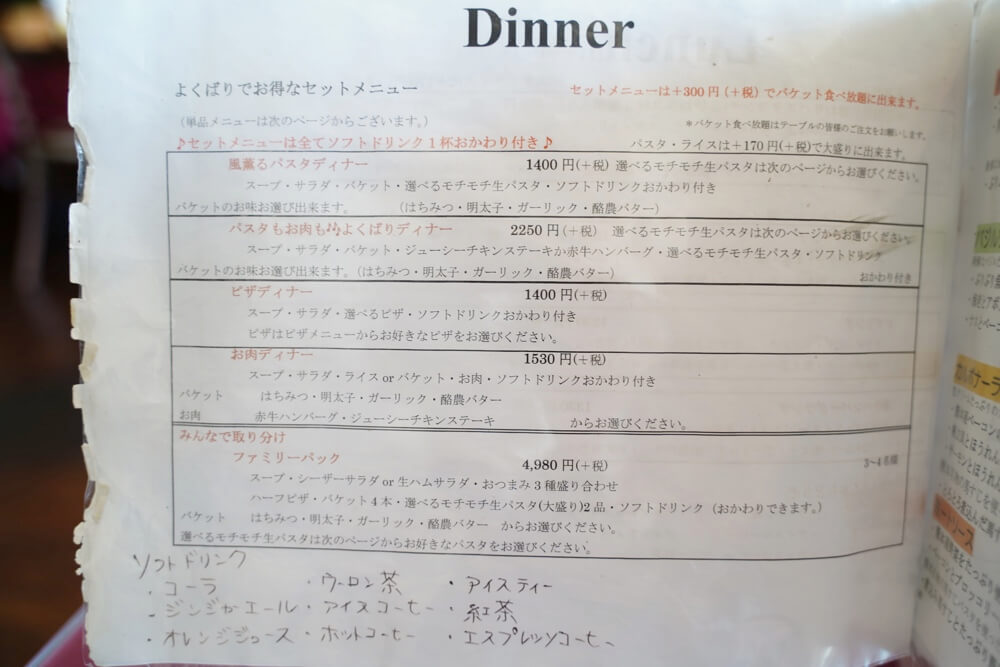 Dinner
よくばりでお得なセットメニュー
セットメニューは+300円（+税）でバケット食べ放題に出来ます。
（単品メニューは次のページからございます。）
＊バケット食べ放題はテーブルの皆様のご注文をお願いします。
♪セットメニューは全てソフトドリンク1杯おかわり付き♪
パスタ・ライスは+170円(+税)で大盛りに出来ます。
風薫るパスタディナー 1400円(+税) 選べるモチモチ生パスタは次のページからお選びください。
スープ・サラダ・バケット・選べるモチモチ生パスタ・ソフトドリンクおかわり付き
バケットのお味お選び出来ます。 （はちみつ・明太子・ガーリック・酪農バター）
パスタもお肉も♪よくばりディナー 2250円（+税） 選べるモチモチ生パスタは次のページからお選びください。
スープ・サラダ・バケット・ジューシーチキンステーキか赤牛ハンバーグ・選べるモチモチ生パスタ・ソフトドリンク
バケットのお味お選び出来ます。（はちみつ・明太子・ガーリック・酪農バター） おかわり付き
ピザディナー 1400円(+税)
スープ・サラダ・選べるピザ・ソフトドリンクおかわり付き
ピザはピザメニューからお好きなピザをお選びください。
お肉ディナー 1530円(+税)
スープ・サラダ・ライスorバケット・お肉・ソフトドリンクおかわり付き
バケット はちみつ・明太子・ガーリック・酪農バター
お肉 赤牛ハンバーグ・ジューシーチキンステーキ からお選びください。
みんなで取り分け
ファミリーパック 4,980円(+税) 3～4名様
スープ・シーザーサラダor生ハムサラダ・おつまみ3種盛り合わせ
ハーフピザ・バケット4本・選べるモチモチ生パスタ(大盛り)2品・ソフトドリンク（おかわりできます。）
バケット はちみつ・明太子・ガーリック・酪農バター からお選びください。
選べるモチモチ生パスタは次のページからお好きなパスタをお選びください。
ソフトドリンク
・コーラ ・ウーロン茶 ・アイスティー
・ジンジャーエール ・アイスコーヒー ・紅茶
・オレンジジュース ・ホットコーヒー ・エスプレッソコーヒー